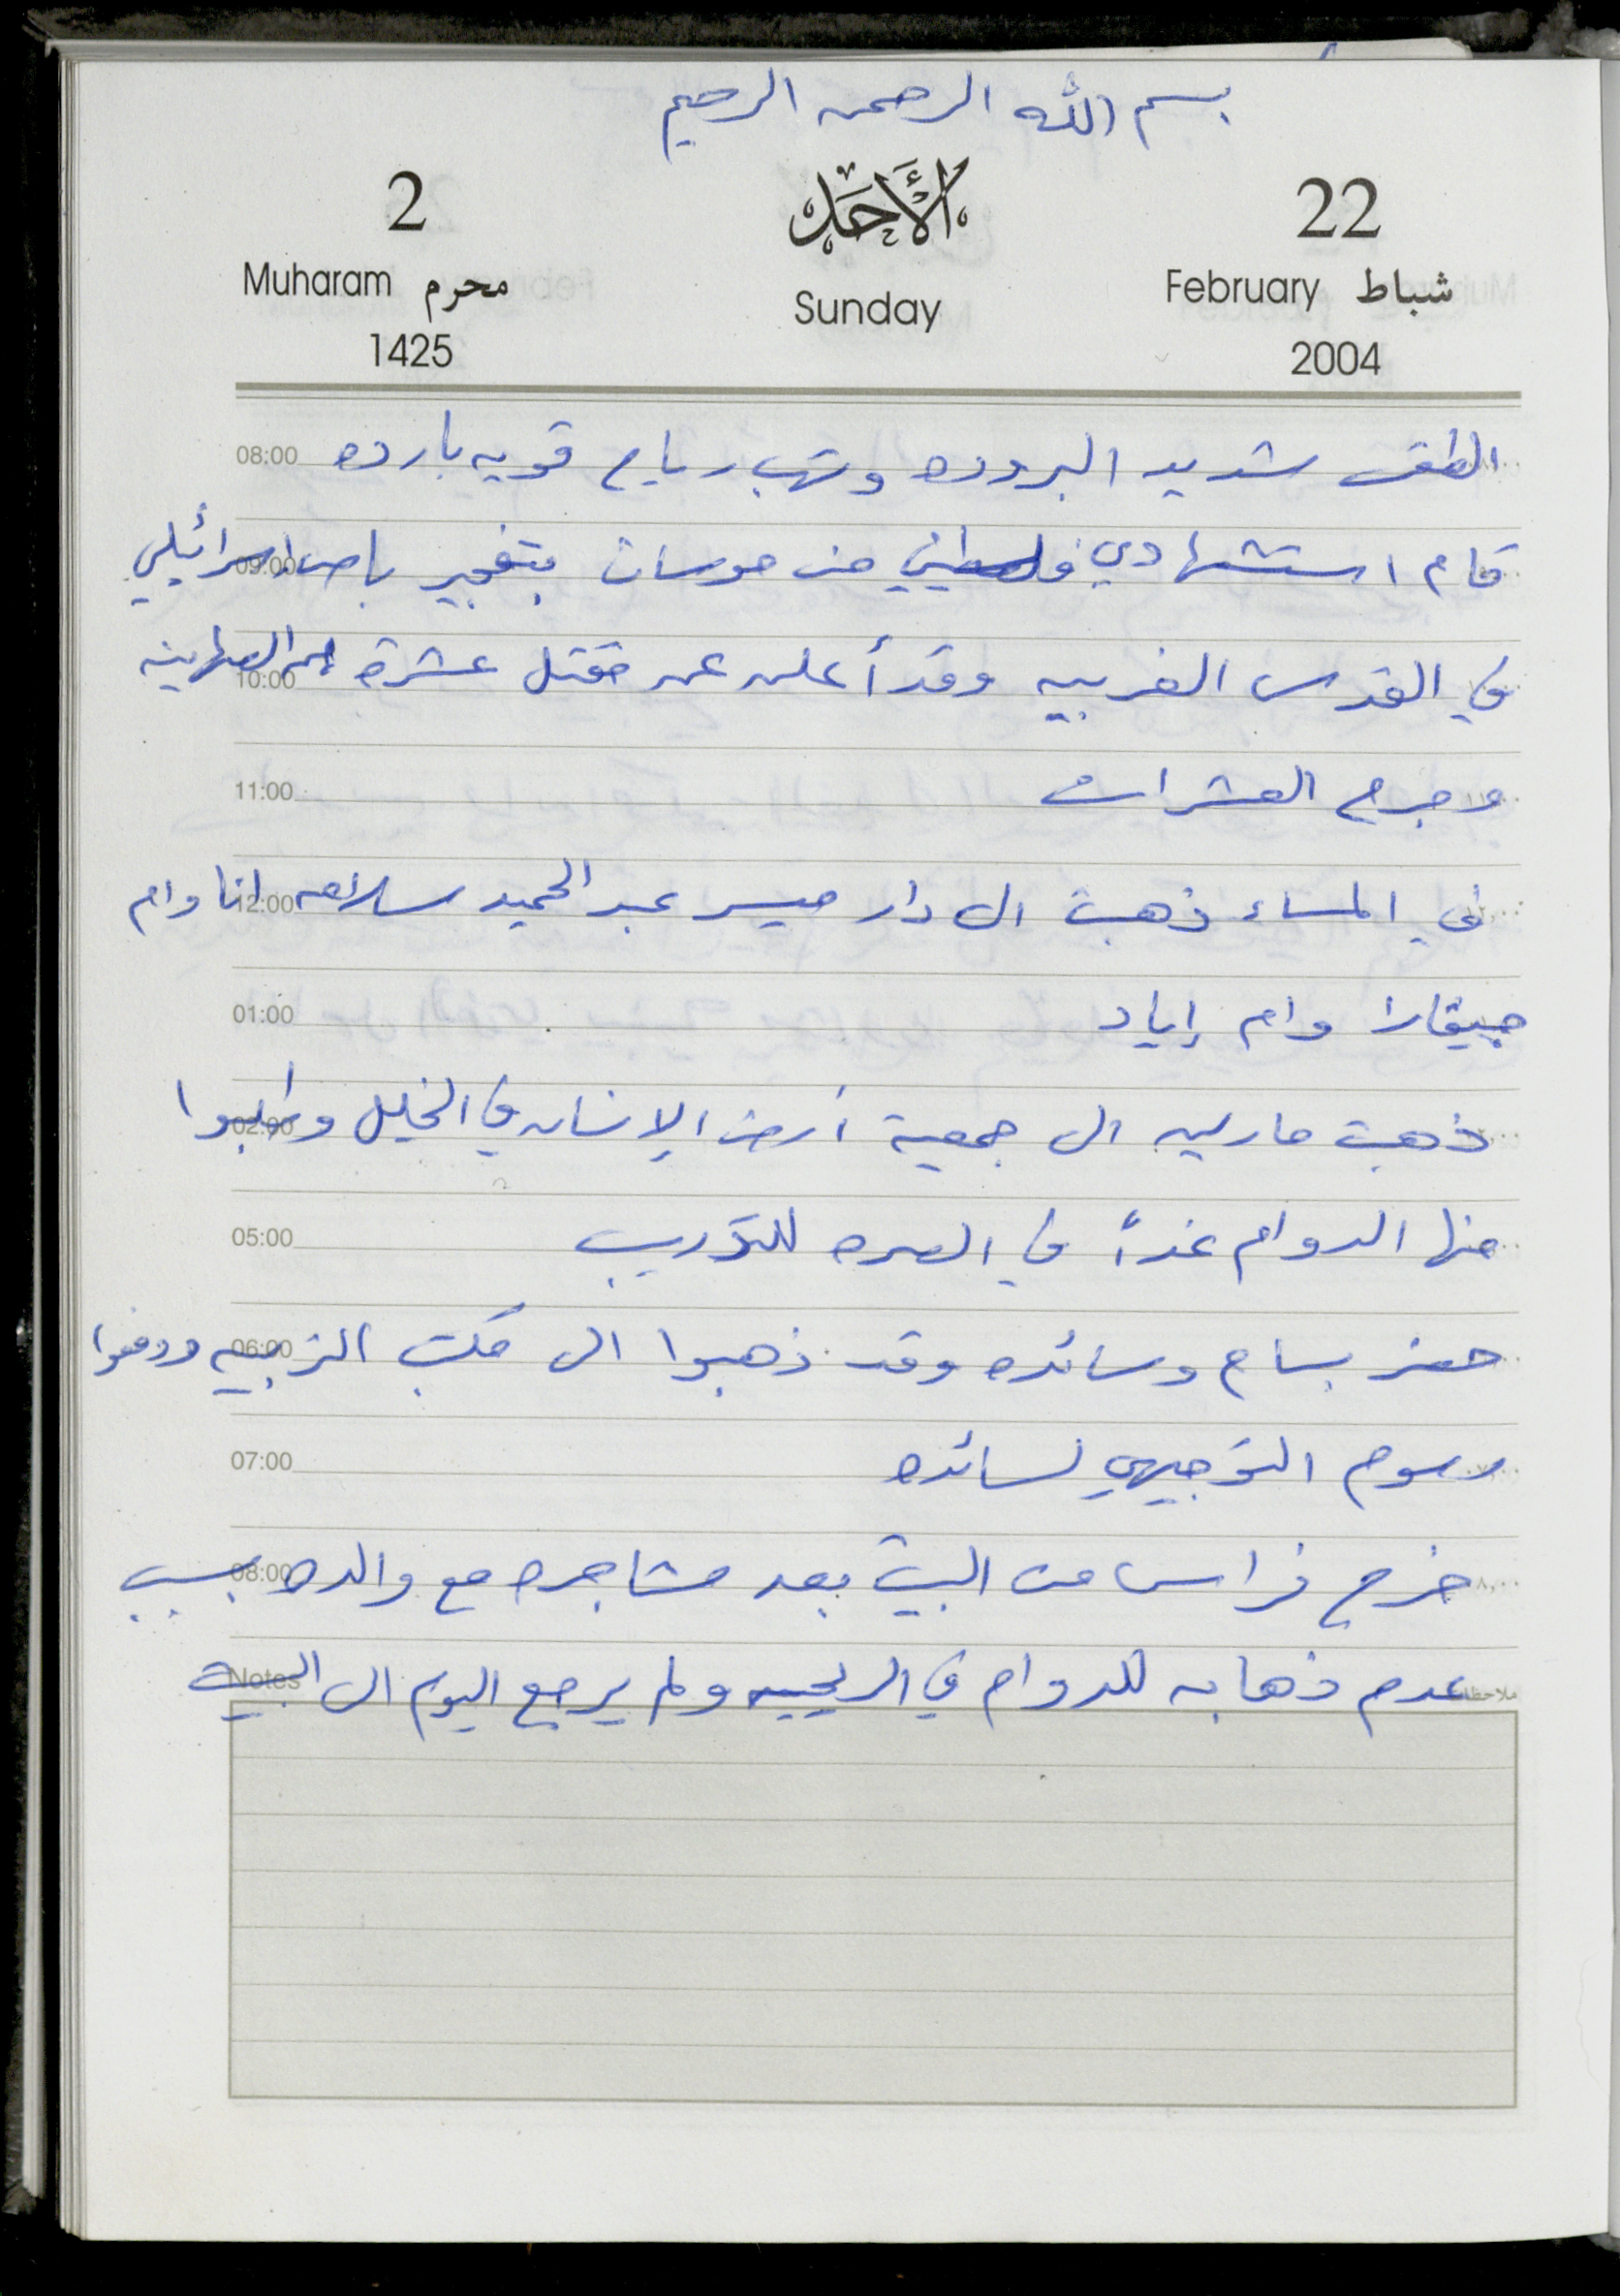 بسم الله الرحمن الرحيم
2 الأحد 22
Muharam محرم Sunday February شباط
1425 2004
08:00 الطقس شديد البروده وتهب رياح قويه بارده
09:00 قام استشهادي فلسطيني من حوسان بتفجير باص اسرائيلي
10:00 في القدس الغربيه وقد أعلن عن مقتل عشرة من الصهاينه
11:00 وجرح العشرات
12:00 في المساء ذهبت الى دار ميسر عبد الحميد سلامه انا وام
01:00 جيفارا وام إياد
02:00 ذهبت ماريه الى جمعية أرض الإنسان في الخليل وطلبوا
05:00 منها الدوام غداً في للتدريب
06:00 حضر بسام وسائده وقد ذهبوا الى مكتب التربيه ودفعوا
07:00 رسوم التوجيهي لسائده
08:00 خرج فراس من البيت بعد مشاجره مع والده بسبب
Notes عدم ذهابه للدوام في ولم يرجع اليوم الى البيت ملاحظات